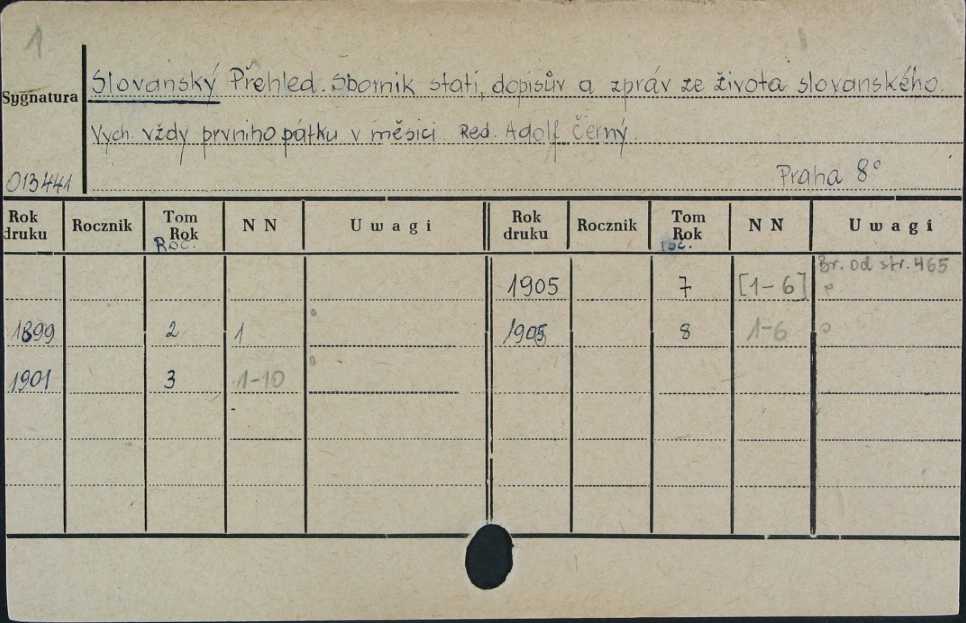 1
Slovanský Přehled. Sborník statí, dopisův a zpráv ze života slovanského.
Sygnatura
Vych. vždy prvního pátku v měsíci. Red. Adolf Černý.
013441
Praha 8°
Rok druku | Rocznik | Tom Rok Roč. | N N | Uwagi | Rok druku | Rocznik | Tom Rok roč. | N N | Uwagi
1905 | 7 | [1-6] | Br. od str. 465
1899 | 2 | 1 | 1905 | 8 | 1-6
1901 | 3 | 1-10